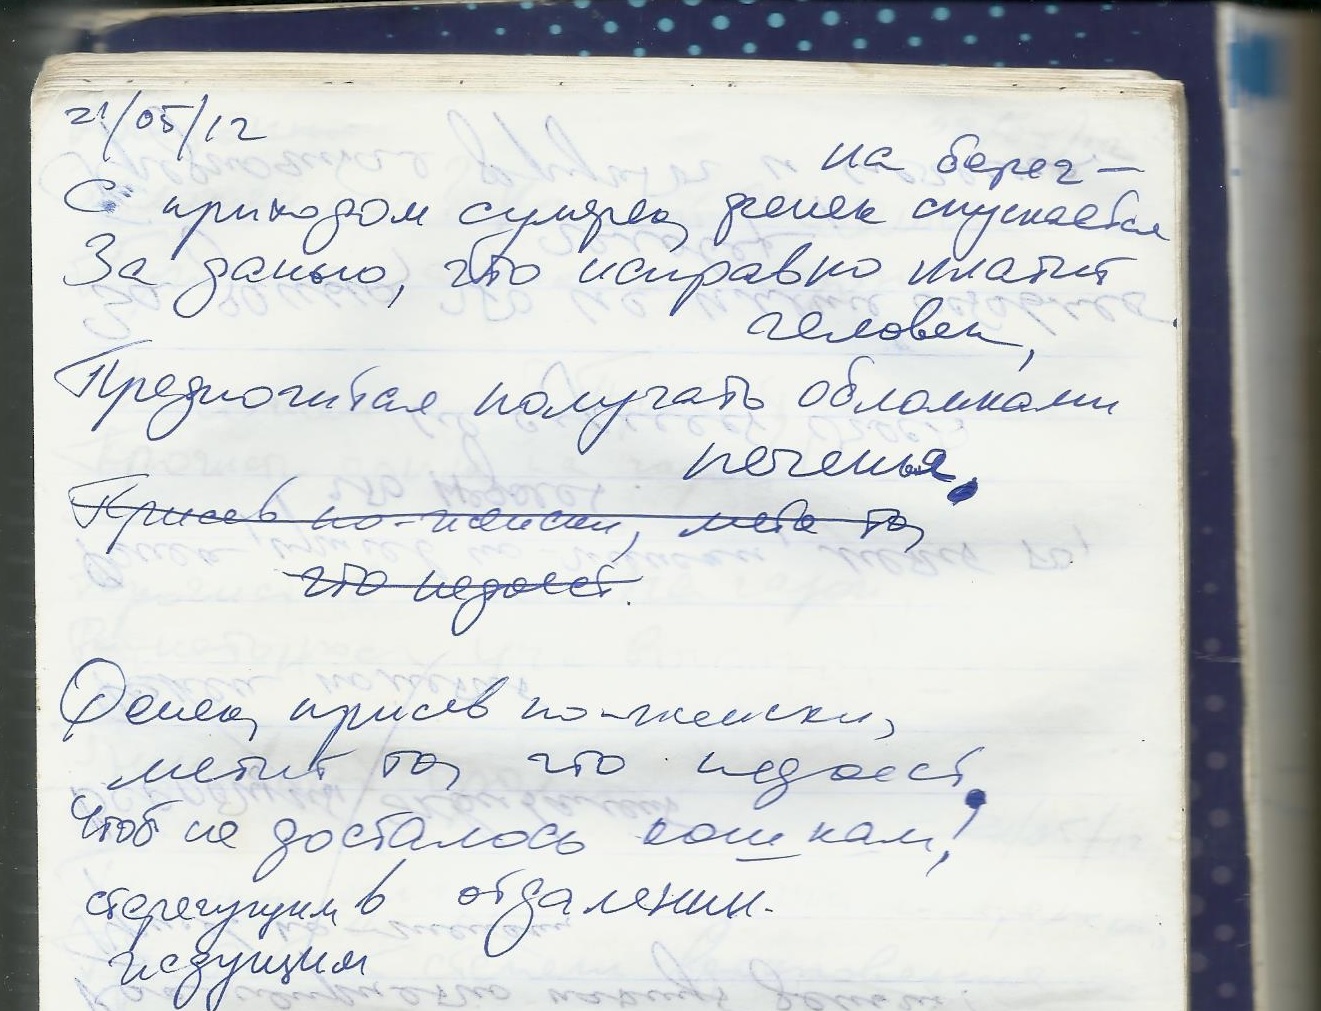 21/05/12
на берег —
С приходом сумрек, фенек спускается
За данью, что исправно платит
человек,
Предпочитая получать обломками
печенья,
Присев по-женски, метя то,
что недоест.
Фенек, присев по-женски,
метит то, что недоест,
Чтоб не досталось кошкам,
стерегущим в отдалении.
ждущим